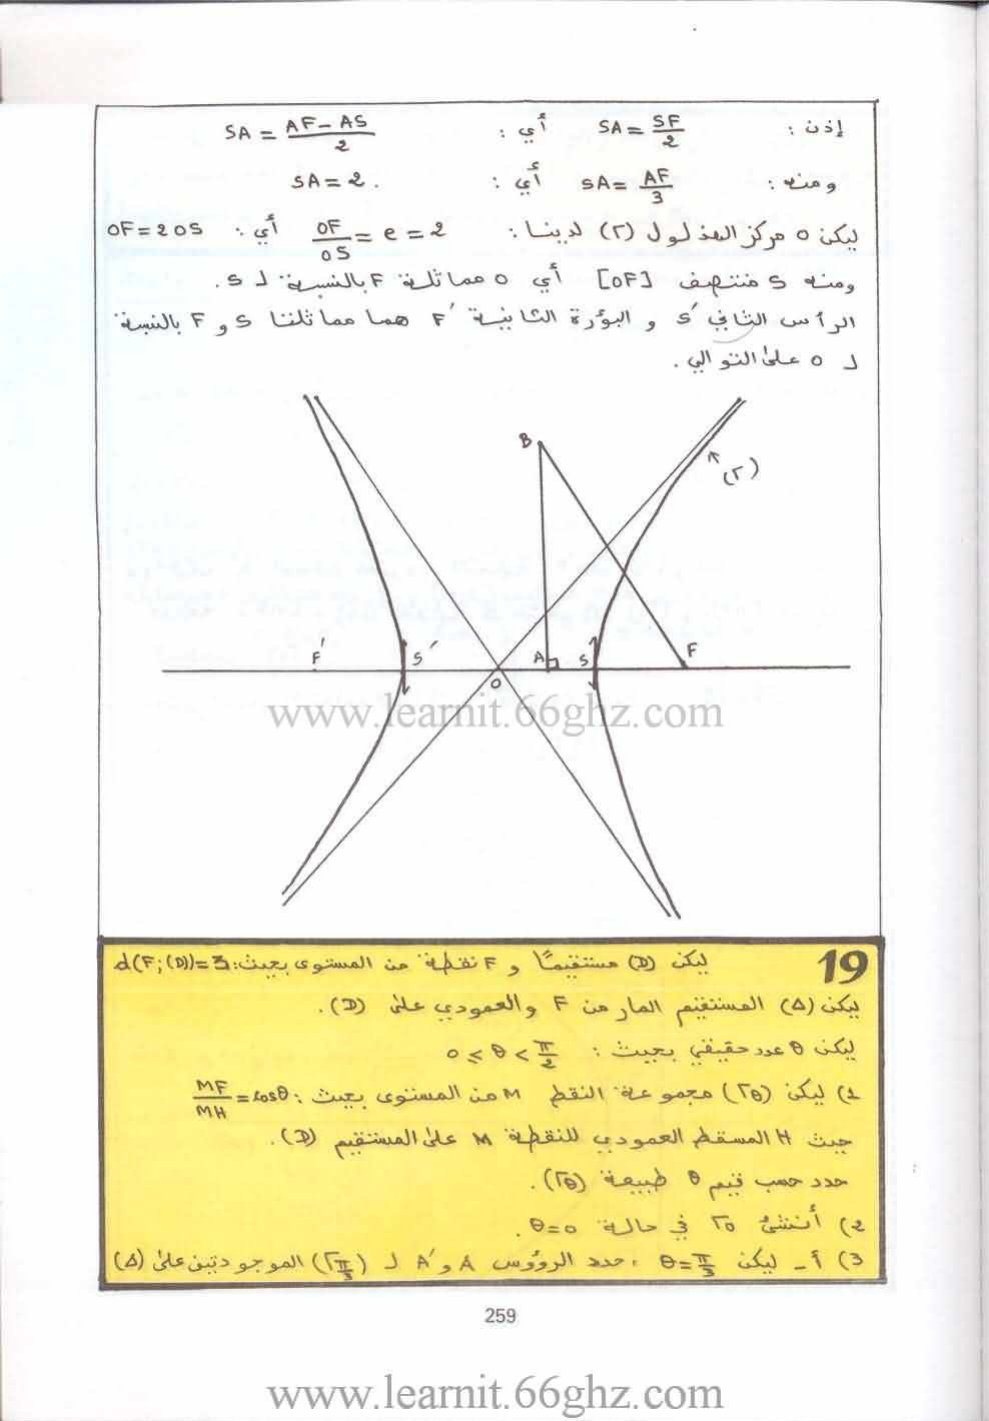 إذن : SA = SF/2 أي : SA = (AF - AS)/2
ومنه : SA = AF/3 أي : SA = 2 .
ليكن O مركز الهذلول (Γ) لدينا : OF/OS = e = 2 أي : OF = 2OS
ومنه S منتصف [OF] أي O مماثلة F بالنسبة لـ S .
الرأس الثاني S' و البؤرة الثانية F' هما مماثلتا S و F بالنسبة
لـ O على التوالي .
B
(Γ)
F'
S'
A
S
F
O
www.learnit.66ghz.com
19
ليكن (D) مستقيمًا و F نقطة من المستوى بحيث : d(F;(D))=3
ليكن (Δ) المستقيم المار من F والعمودي على (D) .
ليكن θ عدد حقيقي بحيث : 0 ≤ θ < π/2
1) ليكن (Γθ) مجموعة النقط M من المستوى بحيث : MF/MH = cosθ
حيث H المسقط العمودي للنقطة M على المستقيم (D) .
حدد حسب قيم θ طبيعة (Γθ) .
2) أنشئ Γ0 في حالة θ=0 .
3) أ - ليكن θ = π/3 ، حدد الرؤوس A و A' لـ (Γπ/3) الموجودتين على (Δ)
259
www.learnit.66ghz.com